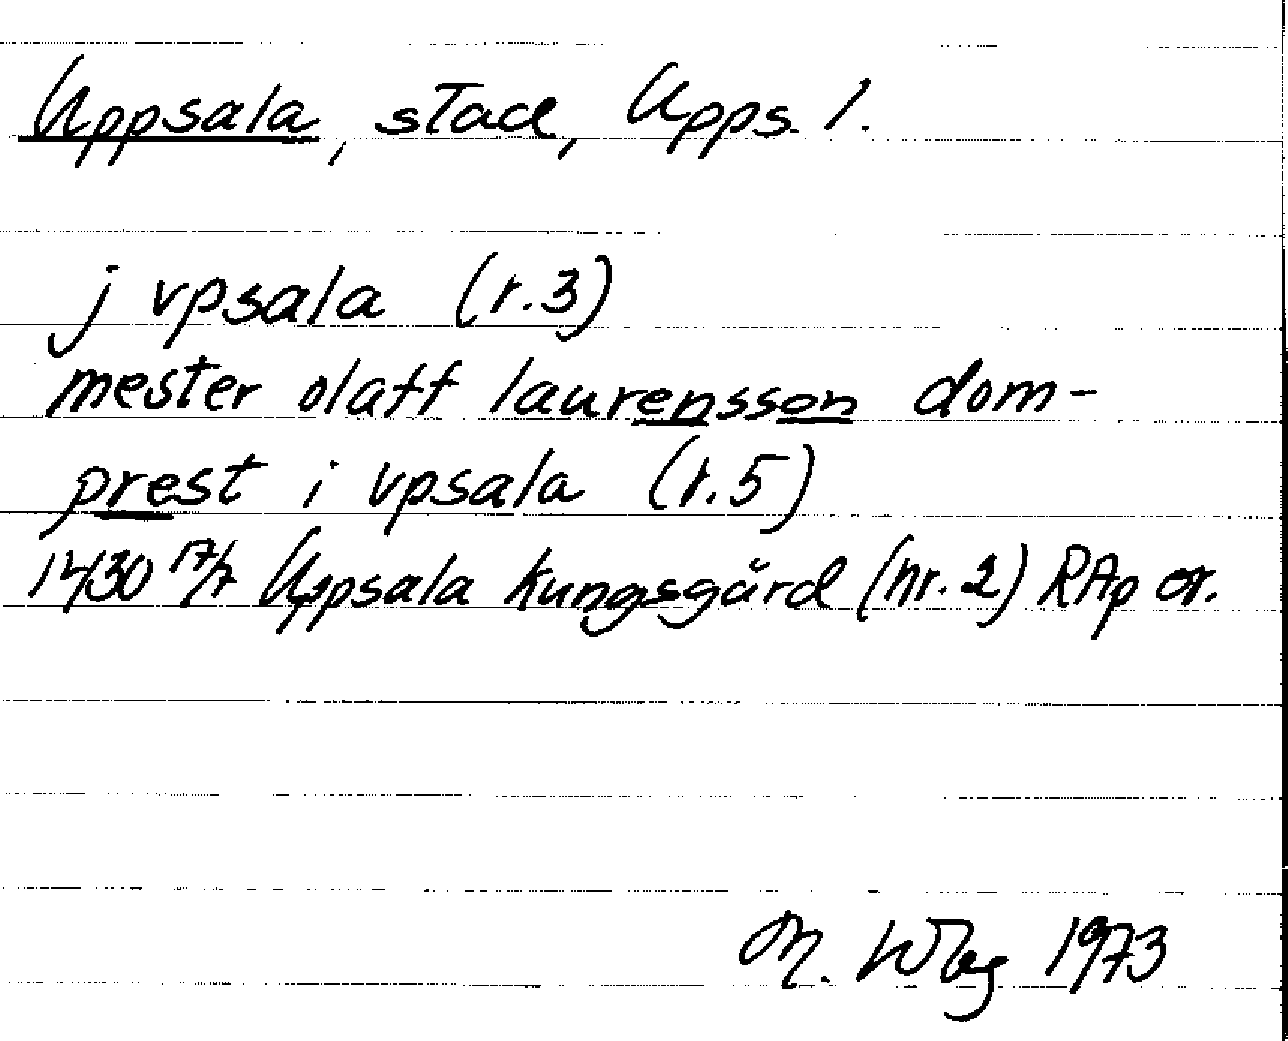 Uppsala, stad, Upps. l.
j vpsala (r.3)
mester olaff laurensson dom-
prest i vpsala (r.5)
1430 17/7 Uppsala kungsgård (nr. 2) RAp or.
M. 1973